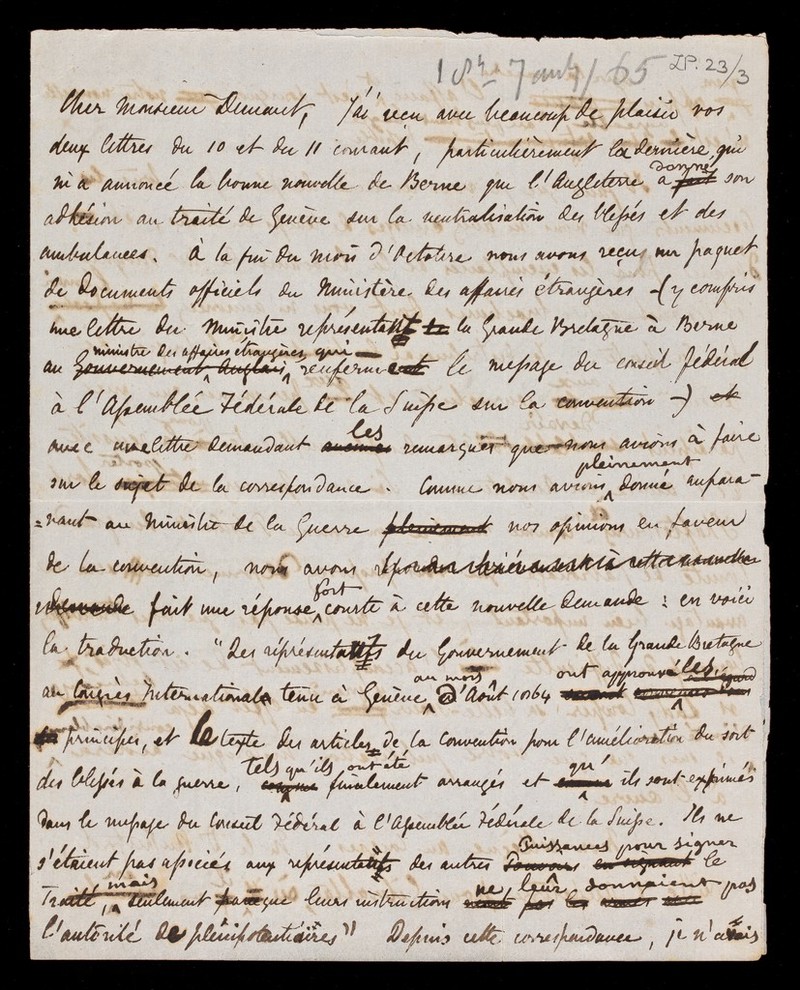 18th Janry / 65 LP. 23/3
Cher Monsieur Dunant, J'ai reçu avec beaucoup de plaisir vos
deux lettres du 10 et du 11 courant, particulièrement la dernière, qui
m'a annoncé la bonne nouvelle de Berne que l'Angleterre a fait donné son
adhésion au traité de Genève sur la neutralisation des blessés et des
ambulances. À la fin du mois d'Octobre nous avons reçu un paquet
de documents officiels du Ministère des affaires étrangères - (y compris
une lettre du Ministre représentant de la Grande Bretagne à Berne
au Gouvernement Anglais ministre des affaires étrangères, qui renferme le message du conseil fédéral
à l'Assemblée Fédérale de la Suisse sur la convention -) et
avec une lettre demandant aucunes les remarques que nous avions à faire
sur le sujet de la correspondance. Comme nous avions pleinement donné aupara-
=vant au Ministre de la Guerre pleinement nos opinions en faveur
de la convention, nous avons à cette nouvelle
demande fait une réponse fort courte à cette nouvelle demande : en voici
la traduction. "Les représentants du Gouvernement de la Grande Bretagne
au Congrès International tenu à Genève au mois d'Août 1864 ont approuvé les
principes, et le texte des articles de la convention pour l'amélioration du sort
des blessés à la guerre, comme tels qu'ils ont été finalement arrangés et comme qu' ils sont exprimés
dans le message du Conseil Fédéral à l'Assemblée Fédérale de la Suisse. Ils ne
s'étaient pas associés aux représentants des autres Pouvoirs en signant Puissances pour signer le
Traité, mais seulement parceque leurs instructions ne leur donnaient pas
l'autorité de plénipotentiaires" Depuis cette correspondance, je n'avais